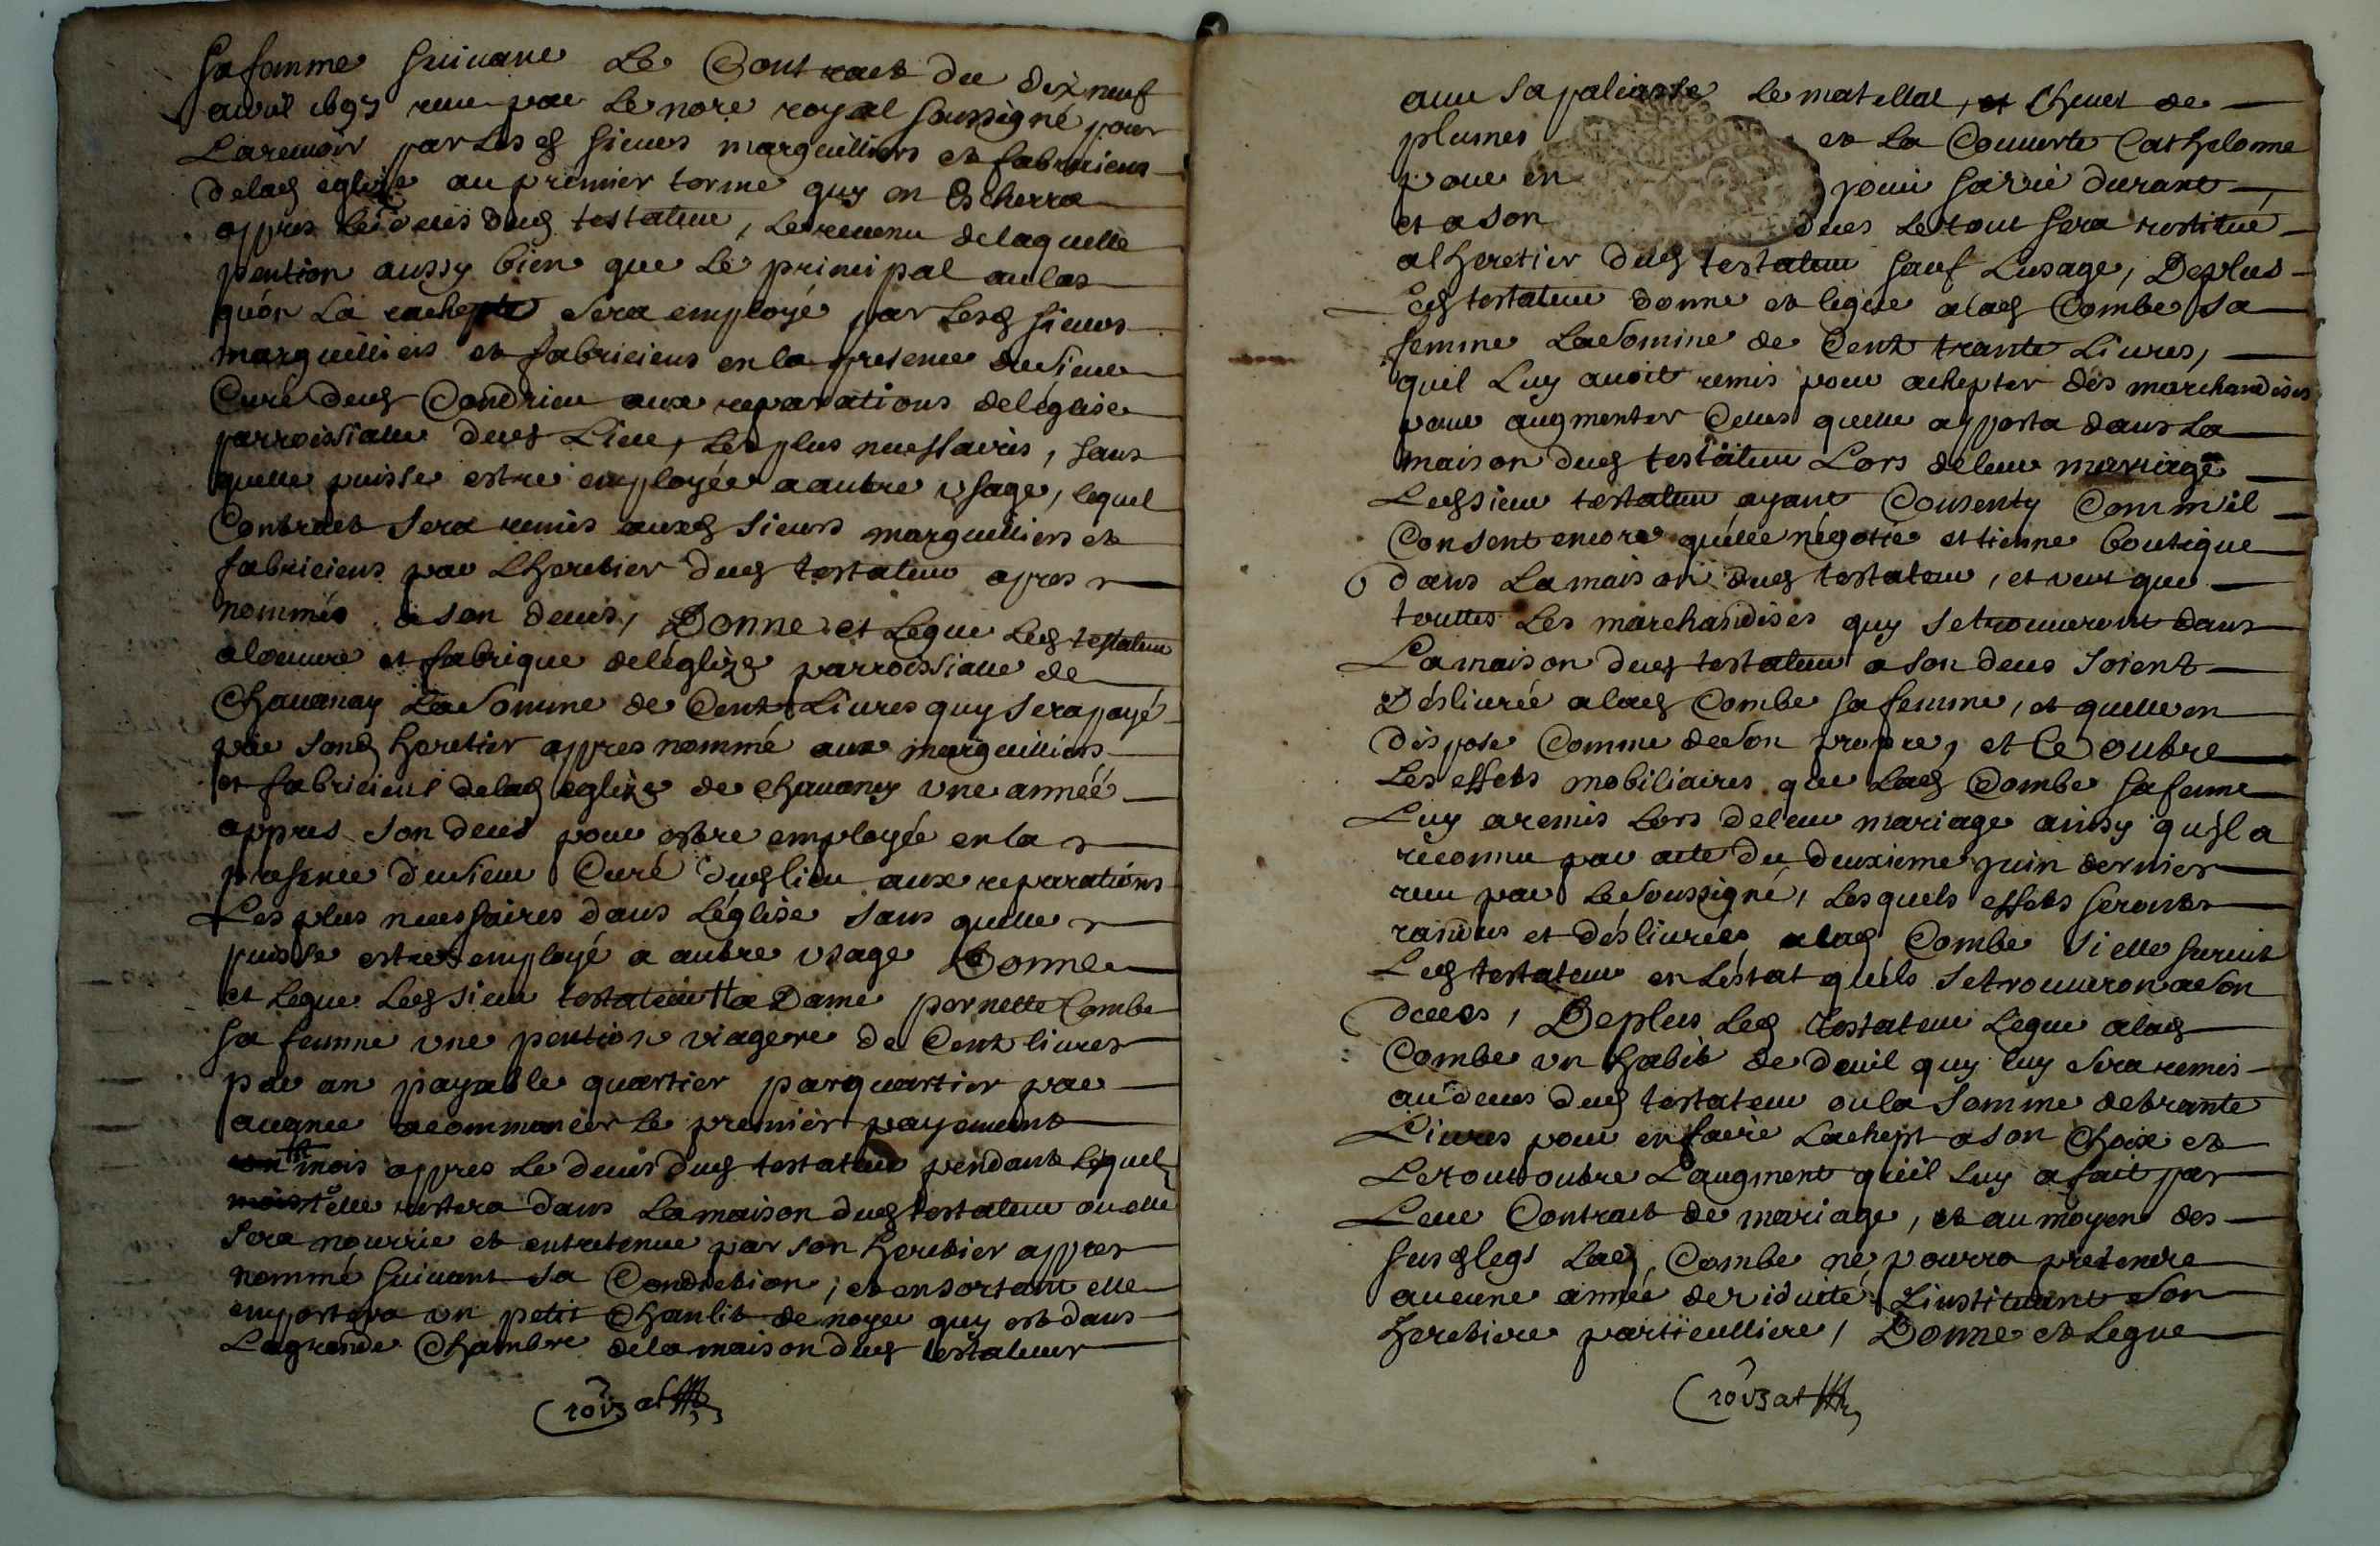 sa femme suivant Le Contract du dix neuf
avril 1697 receu par Le nore royal soussigné pour
La revoir par Les d sieurs marguilliers et fabriciens
de lad eglize au premier terme quy en Escherra
appres Le deces dud testateur, Le revenu de laquelle
pention aussy bien que Le principal au cas
qu'on La rachepte sera employé par Lesd sieurs
marguilliers et fabriciens en la presence du sieur
Curé dud Condrieu aux reparations de l'églize
parroissialle dud Lieu, Les plus necessaires, sans
quelle puisse estre employée a autre usage, lequel
Contract sera remis auxd sieurs marguilliers et
fabriciens par L'heretier dud testateur apres
nommés a son deces, Donne et Legue Led testateur
a loeuvre et fabrique de léglize parroissialle de
Chavanay La Somme de Cent Livres quy sera payé
par sond heretier appres nommé aux marguilliers
et fabriciens de lad eglize de Chavanay une année
appres son deces pour estre employée en la
presence du sieur Curé dud lieu aux reparations
Les plus necessaires dans L'églize sans quelle
puisse estre employé a autre usage Donne
et Legue Led sieur testateur a Dame pernette Combe
sa femme une pention viagere de Cent livres
par an payable quartier par quartier par
avance a commancer Le premier payement
un mois appres Le deces dud testateur pendant Lequel
mois elle restera dans La maison dud testateur ou elle
sera nourrie et entretenue par son heretier appres
nommé suivant sa Condiction; et en sortant elle
emportera un petit Chanlit de noyer quy est dans
La grande Chambre de la maison dud testateur
Crouzat
avec sa paliasse Le matellat, et Chevet de
plumes et La Couverte Cathelonne
pour en jouir sa vie durant,
et a son deces Le tout sera restitué
a lheretier dud testateur sauf L'usage, De plus
Led testateur donne et legue a lad Combe Sa
femme La Somme de Cent trante Livres,
quil Luy avoit remis pour achepter des marchandises
pour augmenter Celles quelle apporta dans La
maison dud testateur Lors de leur mariage
Led sieur testateur ayant Consenty Comm'il
Consent encore qu'elle négotie et tienne boutique
dans La maison dud testateur, et veut que
touttes Les marchandises quy se trouveront dans
La maison dud testateur a son deces soient
Déslivrée a lad Combe sa femme, et quelle en
dispose Comme de son propre, et Ce outre
Les effets mobiliaires que Lad Combe sa femme
Luy a remis Lors de leur mariage ainsy qu'il a
reconnu par acte du deuxieme juin dernier
receu par Le soussigné, Lesquels effets seront
randus et déslivrées a lad Combe si elle survit
Led testateur en L'éstat quéls se trouveron a son
deces, De plus Led testateur Legue a lad
Combe un habit de deuil quy luy sera remis
au deces dud testateur ou la somme de trante
Livres pour en faire L'achept a son Choix et
Le tout outre L'augment qu'il Luy a fait par
Leur Contract de mariage, et au moyen des
susd legs Lad Combe ne pourra pretendre
aucune année de viduité, L'instituant son
heretiere particulliere, Donne et Legue
Crouzat